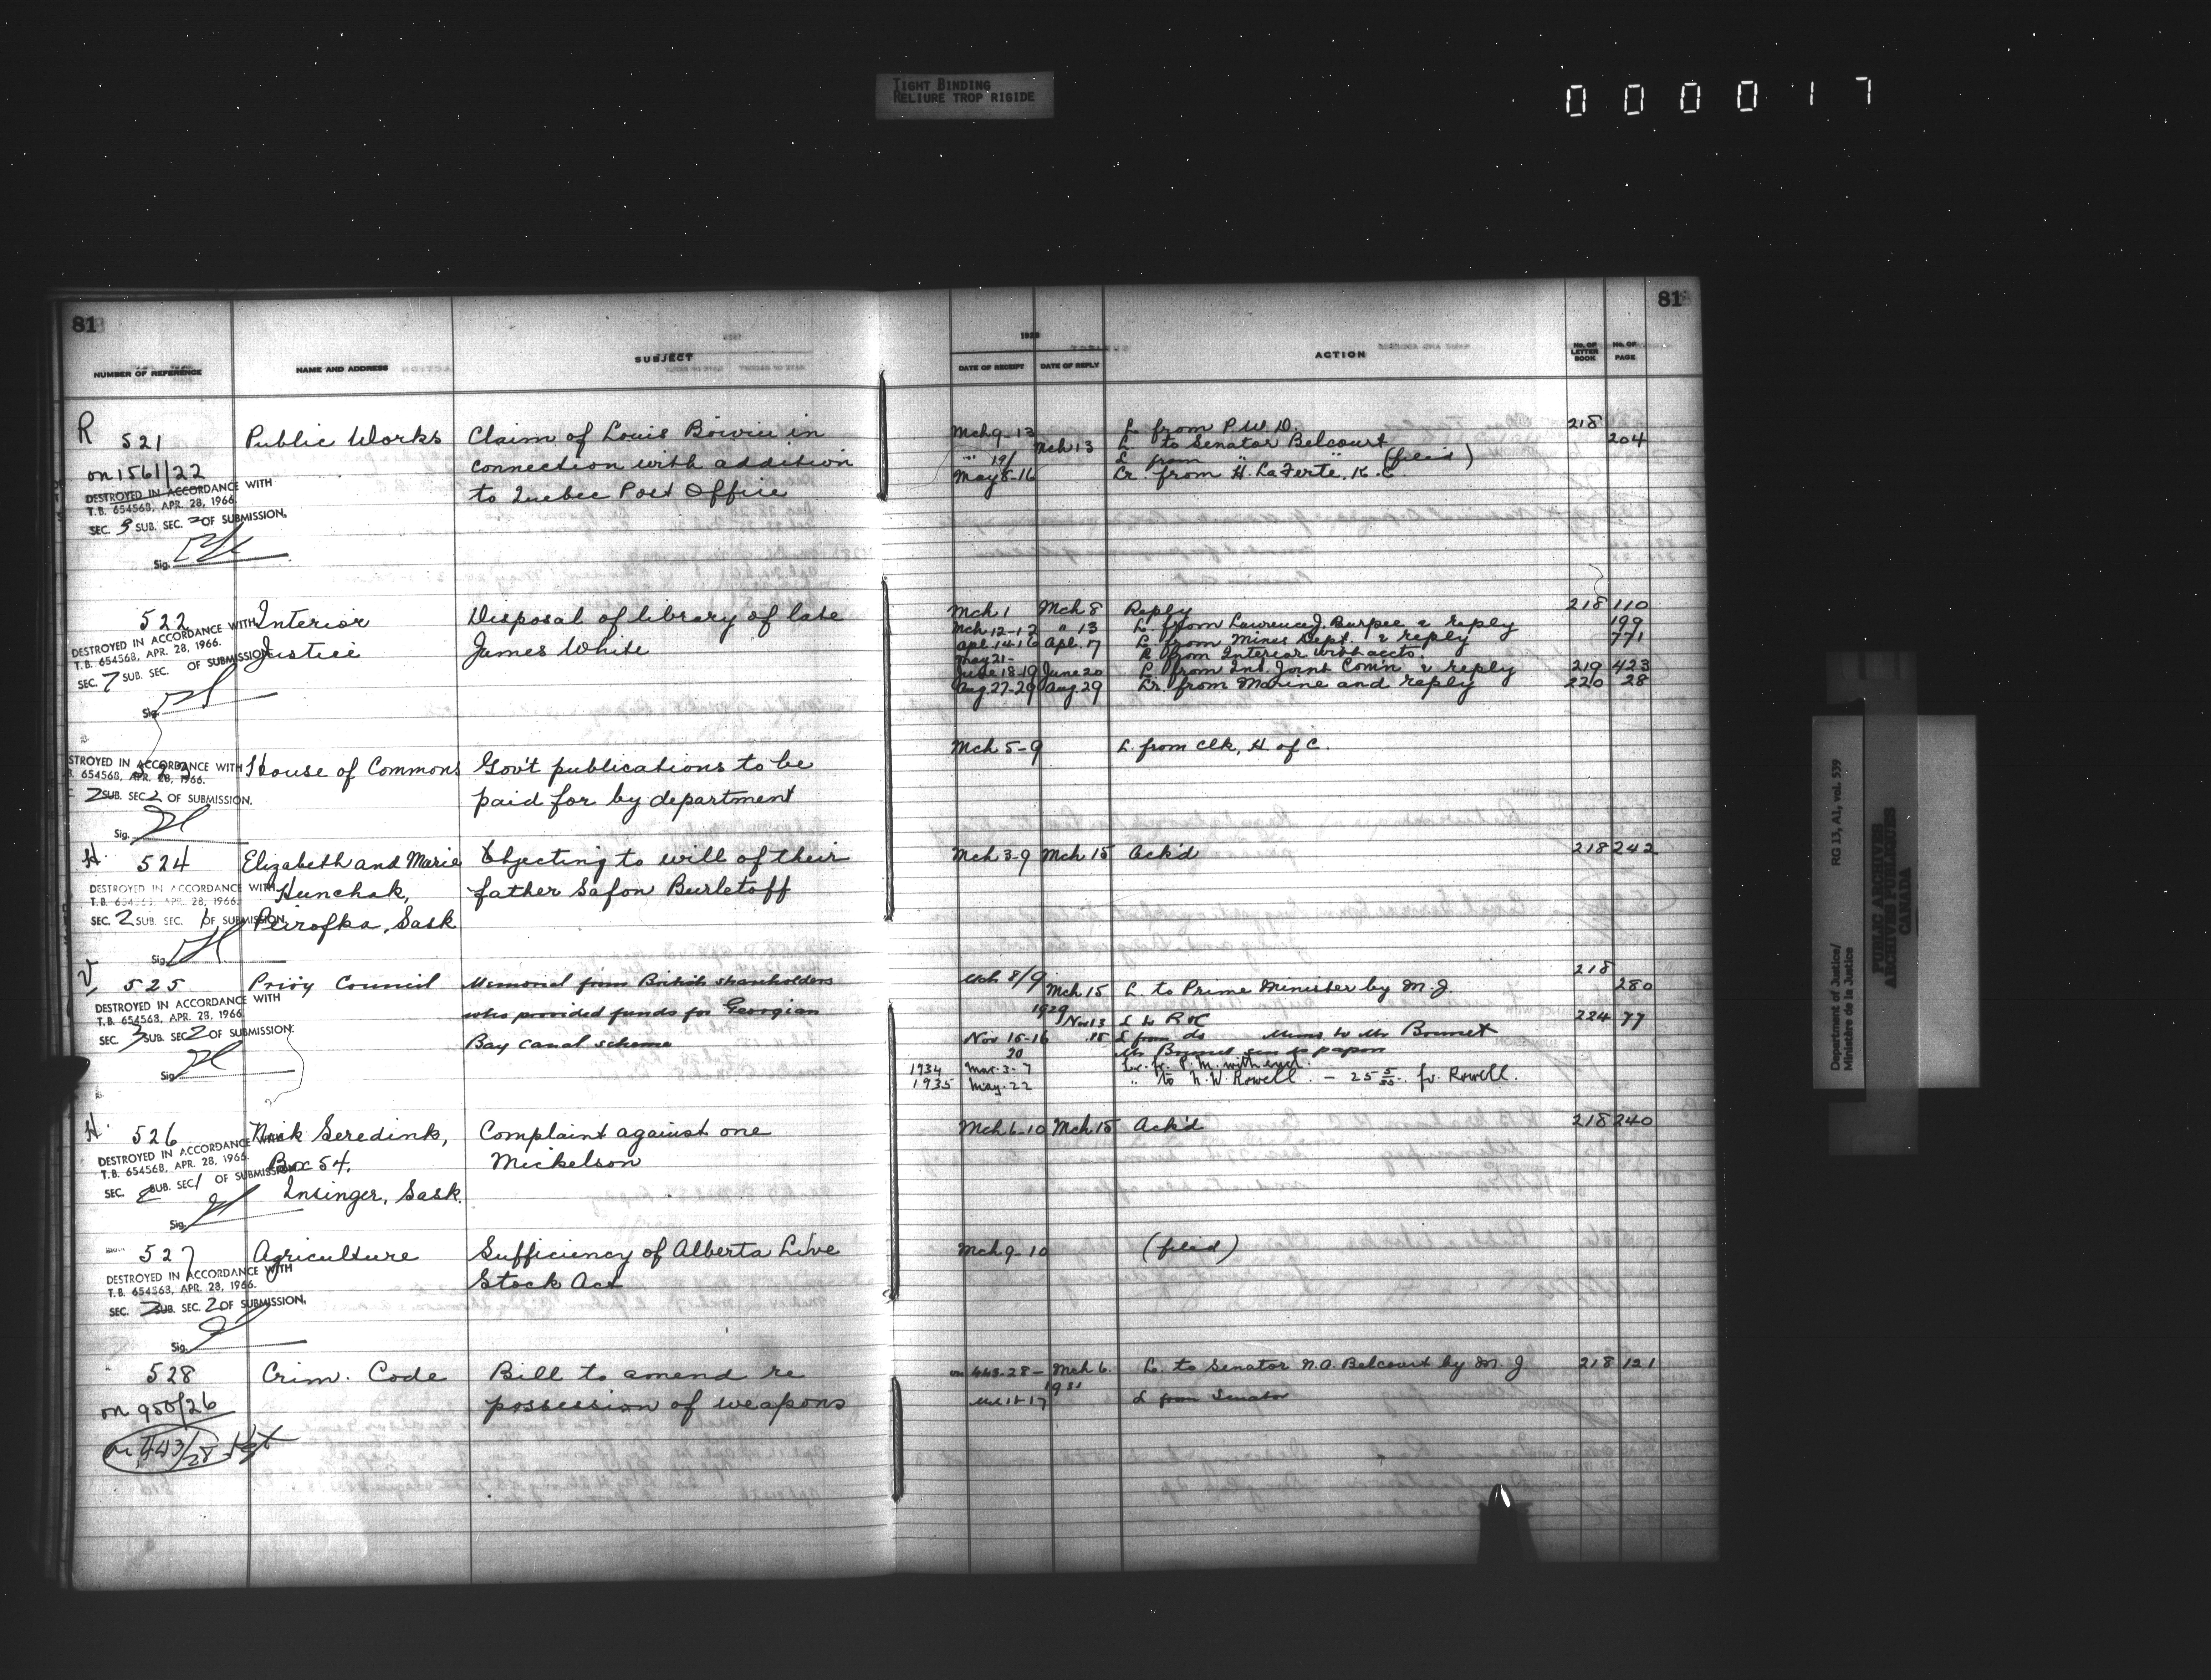 TIGHT BINDING
RELIURE TROP RIGIDE
000017
81
NUMBER OF REFERENCE
NAME AND ADDRESS
SUBJECT
R 521
on 1561/22
DESTROYED IN ACCORDANCE WITH
T.B. 654568, APR. 28, 1966.
SEC. 3 SUB. SEC. 2 OF SUBMISSION.
Sig.
Public Works
Claim of Louis Boivin in
connection with addition
to Quebec Post Office
522
DESTROYED IN ACCORDANCE WITH
T.B. 654568, APR. 28, 1966.
SEC. 7 SUB. SEC. OF SUBMISSION
Sig.
Interior
Justice
Disposal of library of late
James White
523
STROYED IN ACCORDANCE WITH
B. 654568, APR. 28, 1966.
2 SUB. SEC. 2 OF SUBMISSION.
Sig.
House of Commons
Gov't publications to be
paid for by department
H. 524
DESTROYED IN ACCORDANCE WITH
T.B. 654568, APR. 28, 1966.
SEC. 2 SUB. SEC. 1 OF SUBMISSION.
Sig.
Elizabeth and Marie
Hunchak,
Peirofka, Sask
Objecting to will of their
father Safon Burletoff
V, 525
DESTROYED IN ACCORDANCE WITH
T.B. 654568, APR. 28, 1966
SEC. 3 SUB. SEC. 2 OF SUBMISSION.
Sig.
Privy Council
Memorial from British shareholders
who provided funds for Georgian
Bay canal scheme
H. 526
DESTROYED IN ACCORDANCE WITH
T.B. 654568, APR. 28, 1966.
SEC. 2 SUB. SEC. 1 OF SUBMISSION.
Sig.
Nick Seredink,
Box 54.
Insinger, Sask.
Complaint against one
Mickelson
527
DESTROYED IN ACCORDANCE WITH
T.B. 654568, APR. 28, 1966.
SEC. 2 SUB. SEC. 2 OF SUBMISSION.
Sig.
Agriculture
Sufficiency of Alberta Live
Stock Act
528
on 950/26
on 443/28
Crim. Code
Bill to amend re
possession of weapons
81
1928
DATE OF RECEIPT
DATE OF REPLY
ACTION
No. OF LETTER BOOK
No. OF PAGE
Mch 9-13 L from P.W.D. 218
Mch 13 L to Senator Belcourt 204
" 19/ L from " " (filed)
May 8-16 Lr. from H. LaFerté, K.C.
Mch 1 Mch 8 Reply 218 110
Mch 12-12 " 13 L from Lawrence J. Burpee & reply 199
Apl. 14-16 Apl. 17 L from Mines Dept. & reply 771
May 21- R from Interior with accts.
June 18-19 June 20 L from Int. Joint Com'n & reply 219 423
Aug. 27-29 Aug 29 Lr. from Marine and reply 220 28
Mch 5-9 L. from Clk, H. of C.
Mch 3-9 Mch 15 Ack'd 218 242
Mch 8/9 218
Mch 15 L. to Prime Minister by M.J. 280
1929
Nov 13 L to 224 77
Nov 15-16 15 L from do Mems to Mr Bonnet
20 Mr Bonnet papers
1934 Mar. 3-7 Lr. fr. P.M. with encl.
1935 May. 22 " to N.W. Rowell. - 25 5/35. fr. Rowell.
Mch 6-10 Mch 15 Ack'd 218 240
Mch 9-10 (filed)
on 443-28- Mch 6. L. to Senator N.A. Belcourt by M.J 218 121
1931
L from Senator
Department of Justice/
Ministère de la Justice
RG 13, A1, vol. 539
PUBLIC ARCHIVES
ARCHIVES PUBLIQUES
CANADA